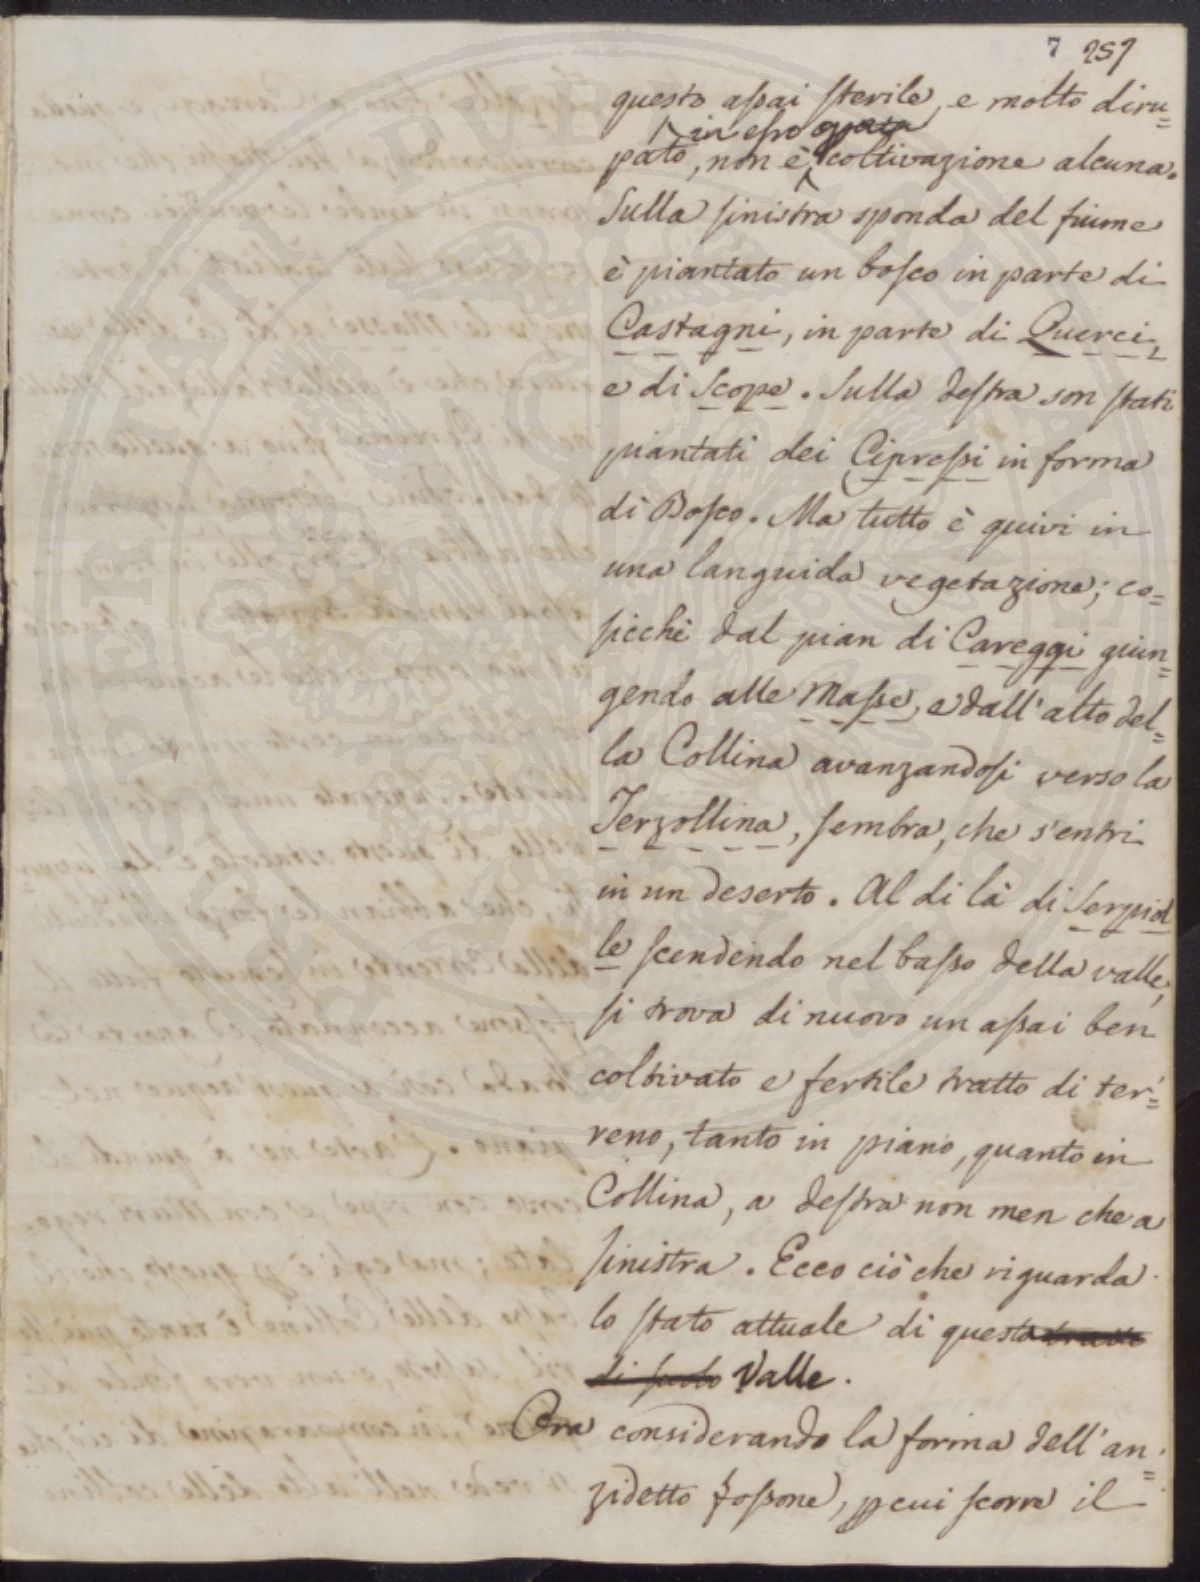 7 257
questo aſsai ſterile, e molto diru=
in eſso
pato, non è coltivazione alcuna.
Sulla ſinistra sponda del fiume
è piantato un boſco in parte di
Castagni, in parte di Querci,
e di Scope. Sulla deſtra son ſtati
piantati dei Cipreſsi in forma
di Boſco. Ma tutto è quivi in
una languida vegetazione; co=
ſicchè dal pian di Careggi giun=
gendo alle Maſse, e dall'alto del=
la Collina avanzandoſi verso la
Terzollina, ſembra, che s'entri
in un deserto. Al di là di Serpiol
le ſcendendo nel baſso della valle,
ſi trova di nuovo un aſsai ben
coltivato e fertile tratto di ter=
reno, tanto in piano, quanto in
Collina, a deſtra non men che a
ſinistra. Ecco ciò che riguarda
lo ſtato attuale di questa tratto
di suolo Valle.
Ora considerando la forma dell'an=
zidetto foſsone, p cui ſcorre il